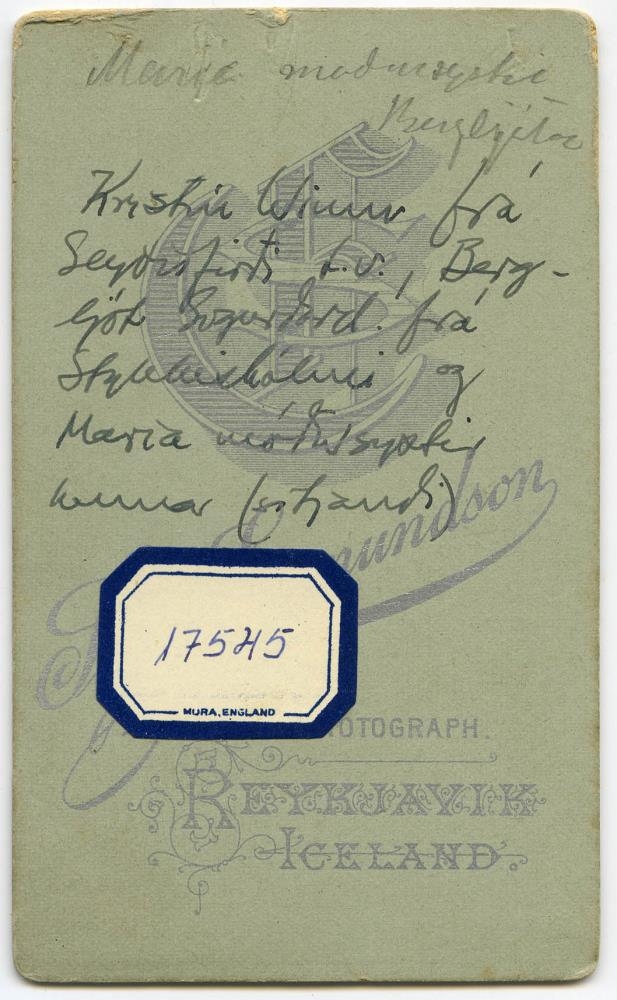 María móðursystir
Bergljótar
Kristín Wium frá
Seyðisfirði t.v., Berg-
ljót Sigurðard. frá
Stykkishólmi og
María móðursystir
hennar (sitjandi)
mundson
17545
MURA, ENGLAND
OTOGRAPH.
REYKJAVIK
ICELAND.